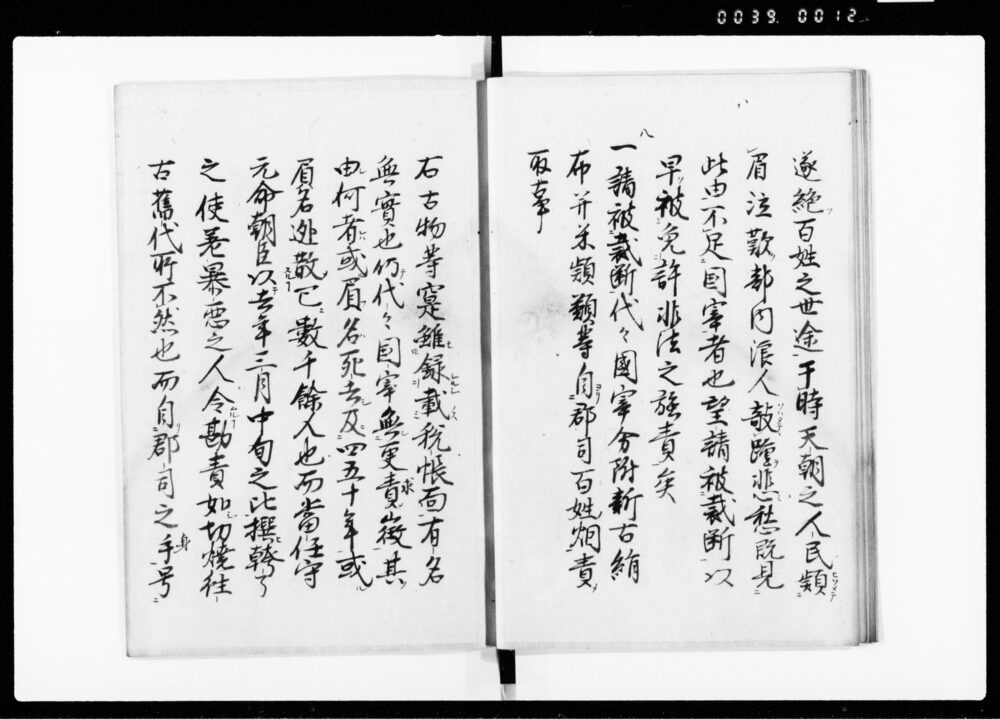 0039 0012
遂絶百姓之世途于時天朝之人民頻
眉泣歎部内浪人敲踵悲愁既見
此由不足国宰者也望請被裁断以
早被免許非法之旅責矣
八
一請被裁断代々國宰分附新古絹
布并米頴類等自郡司百姓烟責
取事
右古物等寔雖録載税帳面有名
無實也仍代々国宰無更責徴其
由何者或眉名死去及四五十年或
眉名逃散已數千餘人也而當任守
元命朝臣以去年三月中旬之比撰
之使差暴悪之人令勘責如切焼往
古舊代所不然也而自郡司之手号